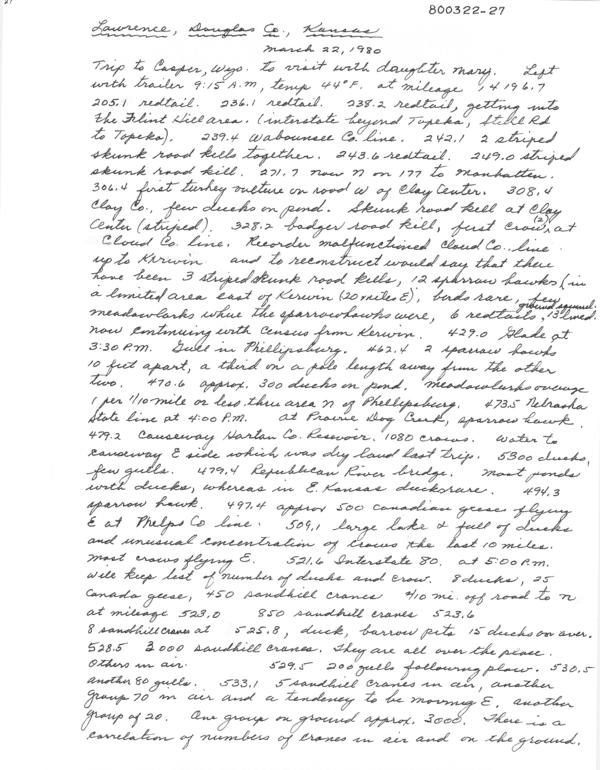 27
800322-27
Lawrence, Douglas Co., Kansas
March 22, 1980
Trip to Casper, Wyo. to visit with daughter Mary. Left
with trailer 9:15 A.M, temp 44°F. at mileage 14196.7
205.1 redtail. 236.1 redtail. 238.2 redtail, getting into
the Flint Hill area. (interstate beyond Topeka, Stull Rd
to Topeka). 239.4 Wabaunsee Co. line. 242.1 2 striped
skunk road kills together. 243.6 redtail. 249.0 striped
skunk road kill. 271.7 now N on 177 to Manhatten.
306.4 first turkey vulture on road W of Clay Center. 308.4
Clay Co., few ducks on pond. Skunk road kill at Clay
Center (striped). 328.2 badger road kill, first crow (2) at
Cloud Co. line. Recorder malfunctioned Cloud Co. line
up to Kerwin and to reconstruct would say that there
have been 3 striped skunk road kills, 12 sparrow hawks (in
a limited area east of Kerwin (20 miles E), birds rare, few
meadowlarks where the sparrowhawks were, 6 redtails, 13 lined ground squirrel.
now continuing with census from Kerwin. 429.0 Glade at
3:30 P.M. Gull in Phillipsburg. 462.4 2 sparrow hawks
10 feet apart, a third on a pole length away from the other
two. 470.6 approx. 300 ducks on pond. Meadowlarks average
1 per 1/10 mile or less thru area N of Phillipsburg. 473.5 Nebraska
State line at 4:00 P.M. at Prairie Dog Creek, sparrow hawk.
479.2 Causeway Harlan Co. Resevoir. 1080 crows. Water to
causeway E side which was dry land last trip. 5300 ducks,
few gulls. 479.4 Republican River bridge. Most ponds
with ducks, whereas in E. Kansas ducks rare. 494.3
sparrow hawk. 497.4 approx 500 canadian geese flying
E at Phelps Co line. 509.1 large lake & full of ducks
and unusual concentration of crows the last 10 miles.
Most crows flying E. 521.6 Interstate 80. at 5:00 P.M.
Will keep list of number of ducks and crow. 8 ducks, 25
Canada geese, 450 sandhill cranes 4/10 mi. off road to N
at mileage 523.0 850 sandhill cranes 523.6
8 sandhill cranes at 525.8, duck, barrow pits 15 ducks on aver.
528.5 3000 sandhill cranes. They are all over the place.
Others in air. 529.5 200 gulls following plow. 530.5
another 80 gulls. 533.1 5 sandhill cranes in air, another
group 70 in air and a tendency to be moving E. another
group of 20. One group on ground approx. 3000. There is a
correlation of numbers of cranes in air and on the ground.